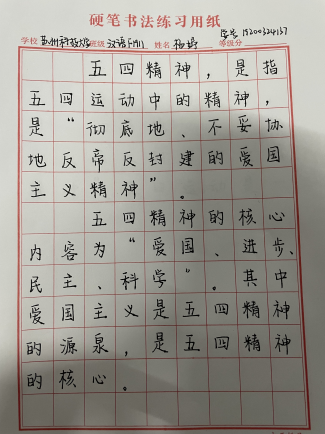 硬笔书法练习用纸
学号 19200324137
学校 苏州科技大学 班级 汉语 姓名 等级分
五四精神，是指
五四运动中的精神，
是“彻底地、不妥协
地反帝反封建的爱国
主义精神”。
五四精神的核心
内容为“爱国、进步、
民主、科学”。其中
爱国主义是五四精神
的源泉，是五四精神
的核心。